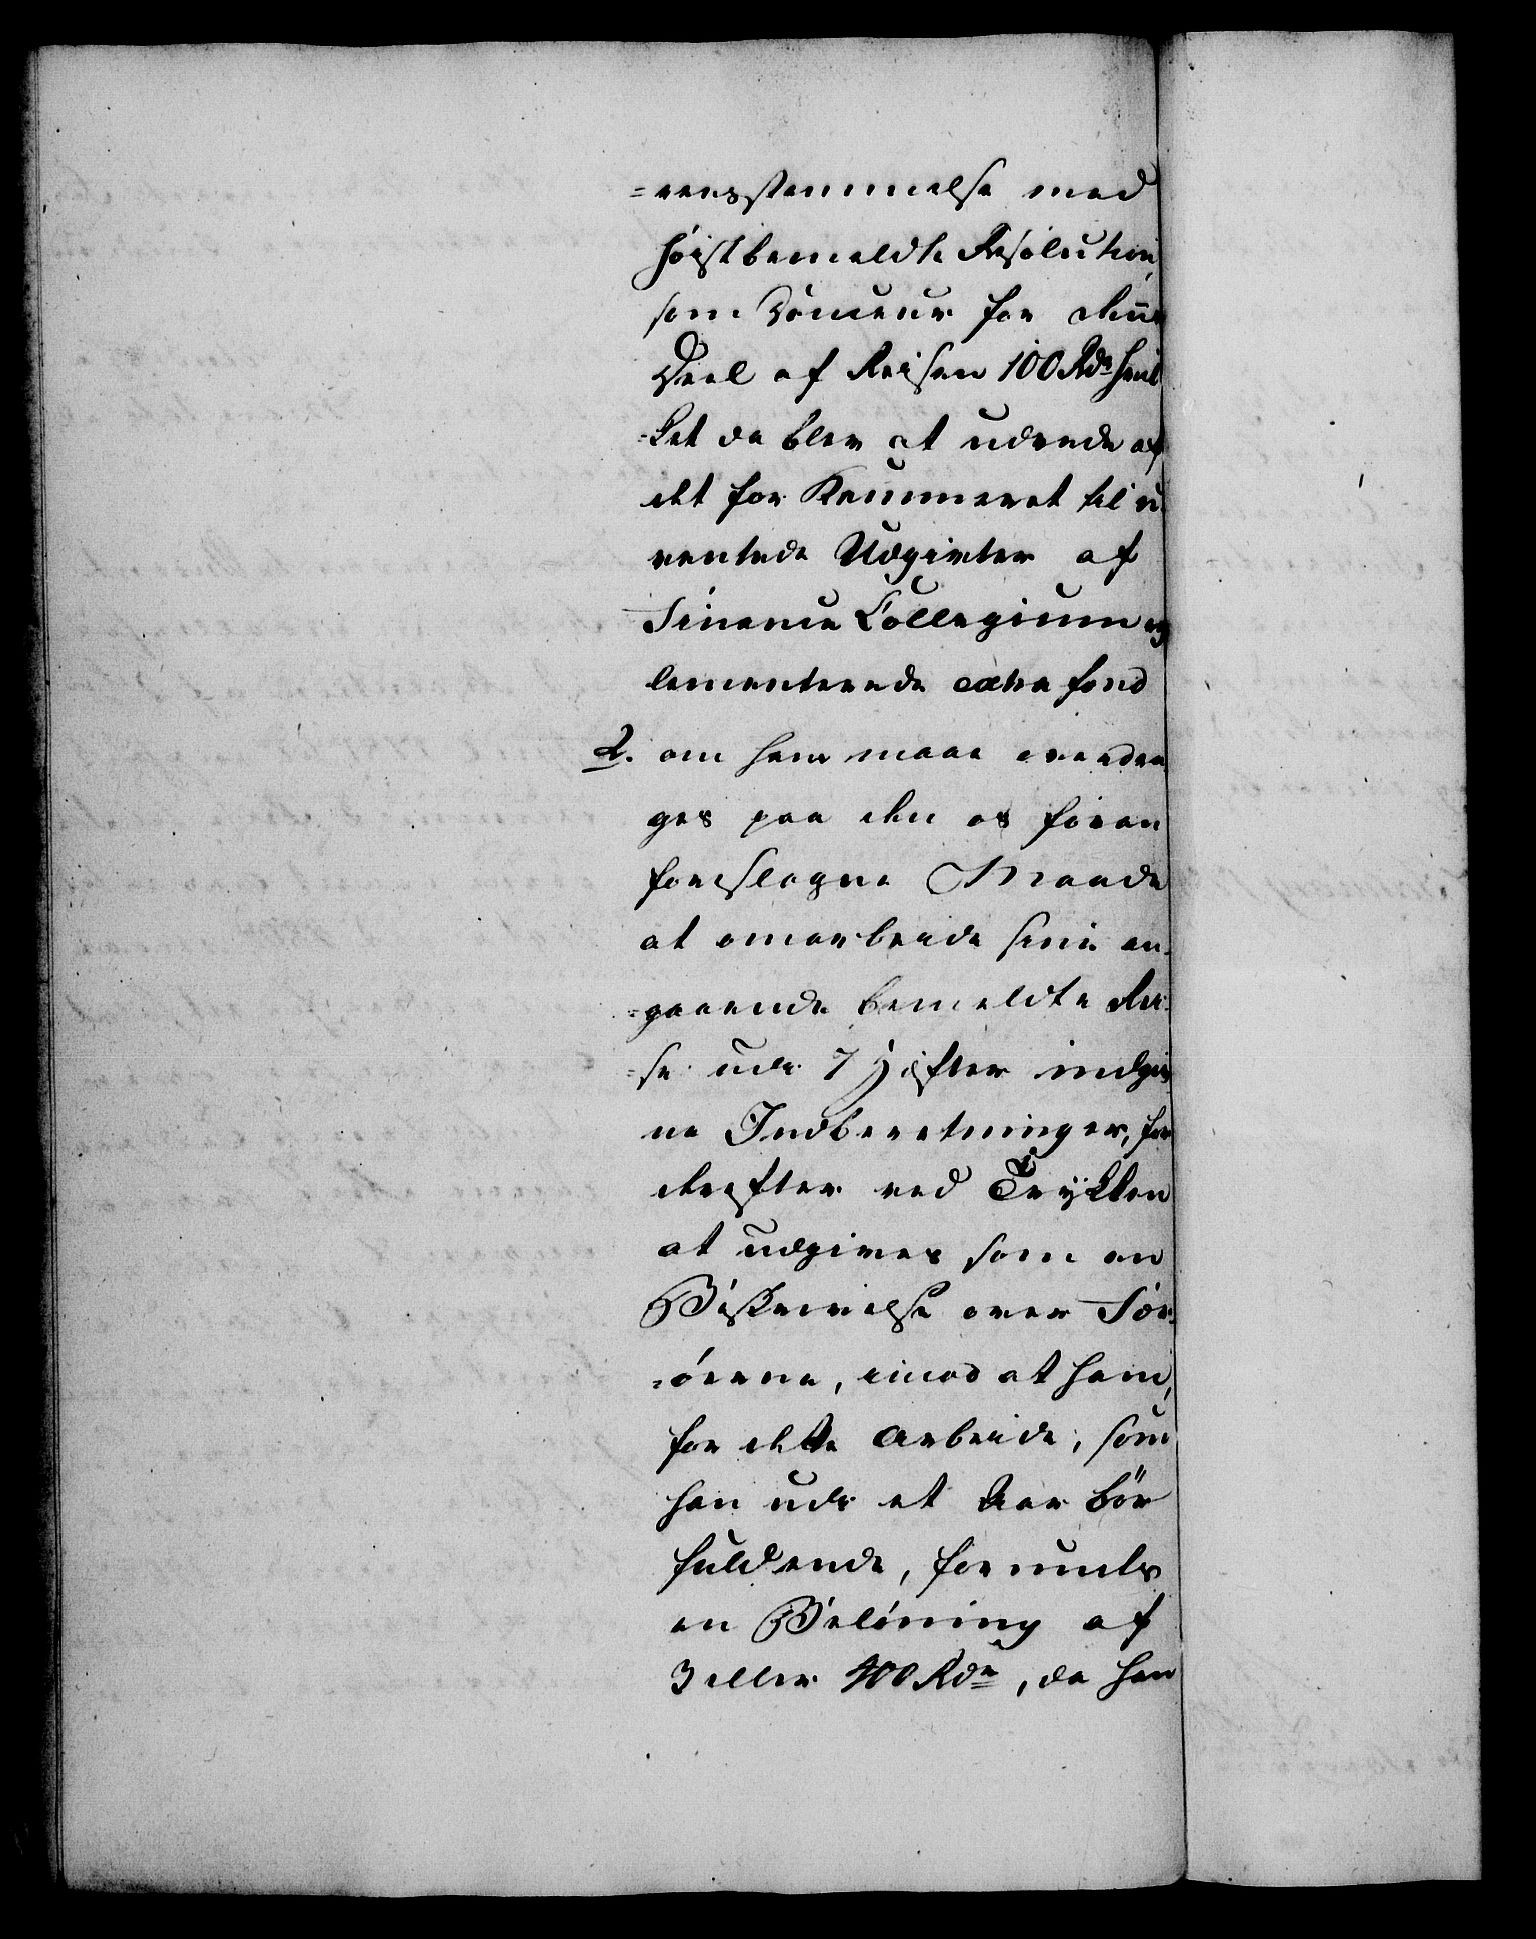 =eensstemmelse med
høistbemeldte Resolution,
som Douceur for denne
Deel af Reisen 100 Rdr hvil
=ket da blev at udrede af
det for Kammeret til u
ventede Udgivter af
Finance Collegium og
lementerede extra fond
2. om ham maae overdra
ges paa den os foran
foreslagne Maade
at omarbeide sine an¬
=gaaende bemeldte Rei¬
=se udi 7 Hefter indgiv
ne Indberetninger, for
derefter ved Trykken
at udgives som en
Beskrivelse over Fær¬
=øerne, imod at ham,
for dette Arbeide, som
han udi et Aar bør
fuldende, forundes
en Belöning af
3 eller 400 Rdr, da han